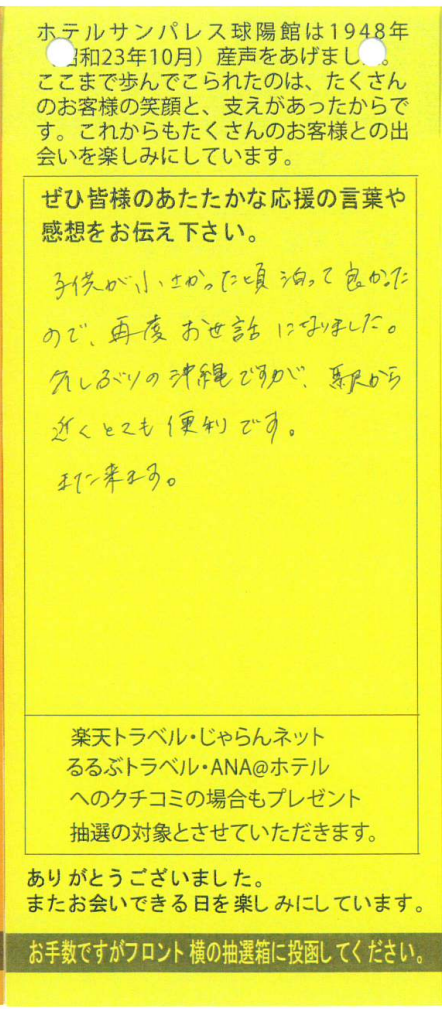 ホテルサンパレス球陽館は1948年
昭和23年10月）産声をあげまし
ここまで歩んでこられたのは、たくさん
のお客様の笑顔と、支えがあったからで
す。これからもたくさんのお客様との出
会いを楽しみにしています。
ぜひ皆様のあたたかな応援の言葉や
感想をお伝え下さい。
子供が小さかった頃泊って良かった
ので、再度お世話になりました。
久しぶりの沖縄ですが、駅から
近くとても便利です。
また来ます。
楽天トラベル・じゃらんネット
るるぶトラベル・ANA@ホテル
へのクチコミの場合もプレゼント
抽選の対象とさせていただきます。
ありがとうございました。
またお会いできる日を楽しみにしています。
お手数ですがフロント横の抽選箱に投函してください。